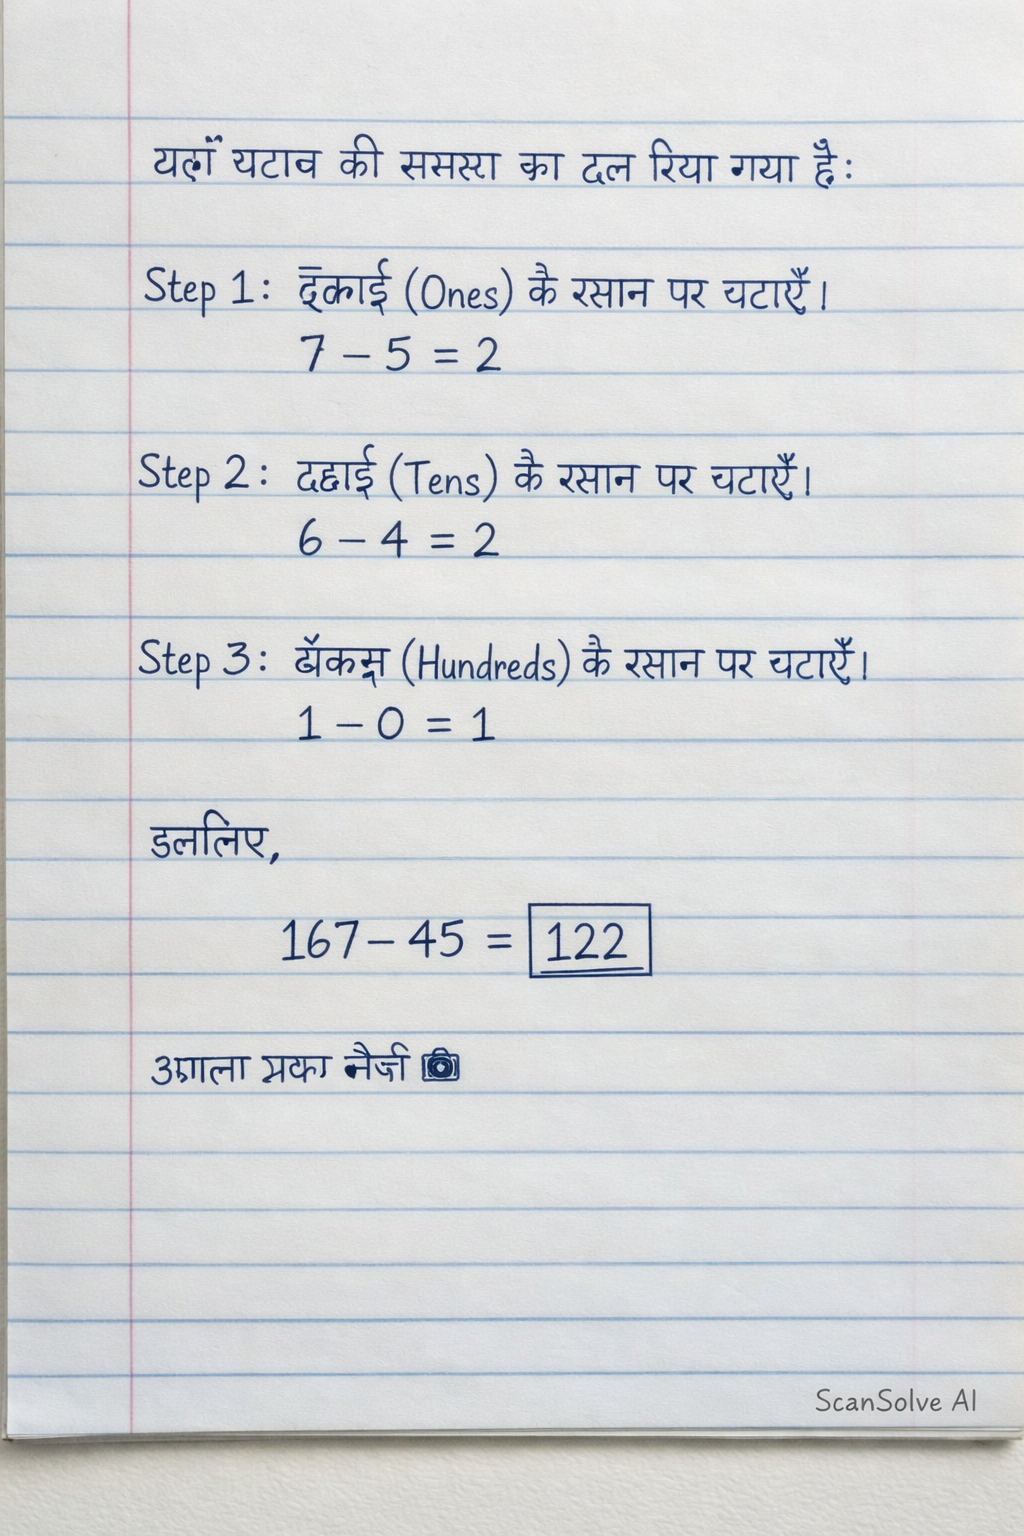 यहाँ यटाव की समस्रा का दल रिया गया है:
Step 1: इकाई (Ones) के रसान पर चटाएँ।
7 – 5 = 2
Step 2: दहाई (Tens) के रसान पर चटाएँ।
6 – 4 = 2
Step 3: (Hundreds) के रसान पर चटाएँ।
1 – 0 = 1
डललिए,
167 – 45 = 122
ScanSolve AI